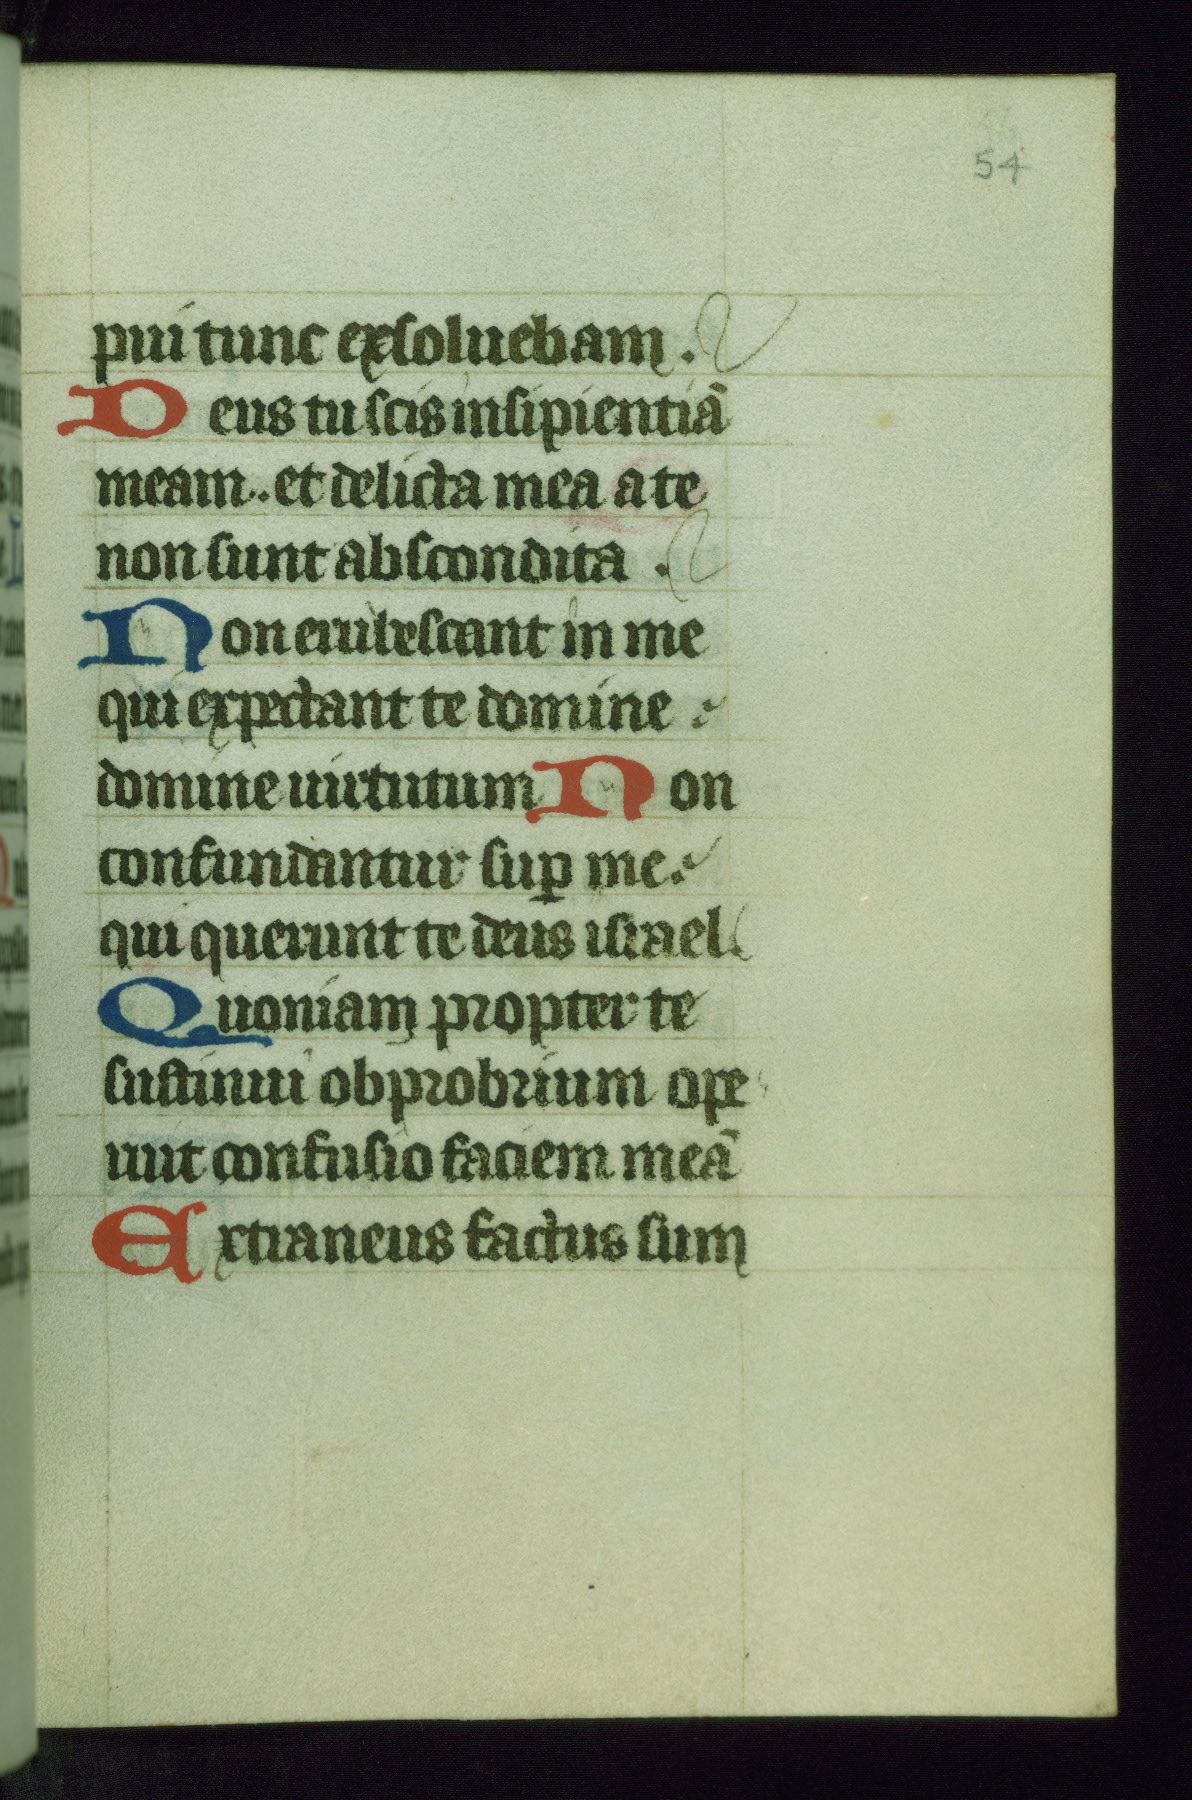 54
pui tunc exsoluebam.
Deus tu scis insipientiã
meam.. et delicta mea a te
non sunt abscondita.
Non erubescant in me
qui expectant te domine
domine uirtutum Non
confundantur suꝑ me.
qui querunt te deus israel
Quoniam propter te
sustinui obprobrium ope
ruit confusio faciem meã
Extraneus factus sum